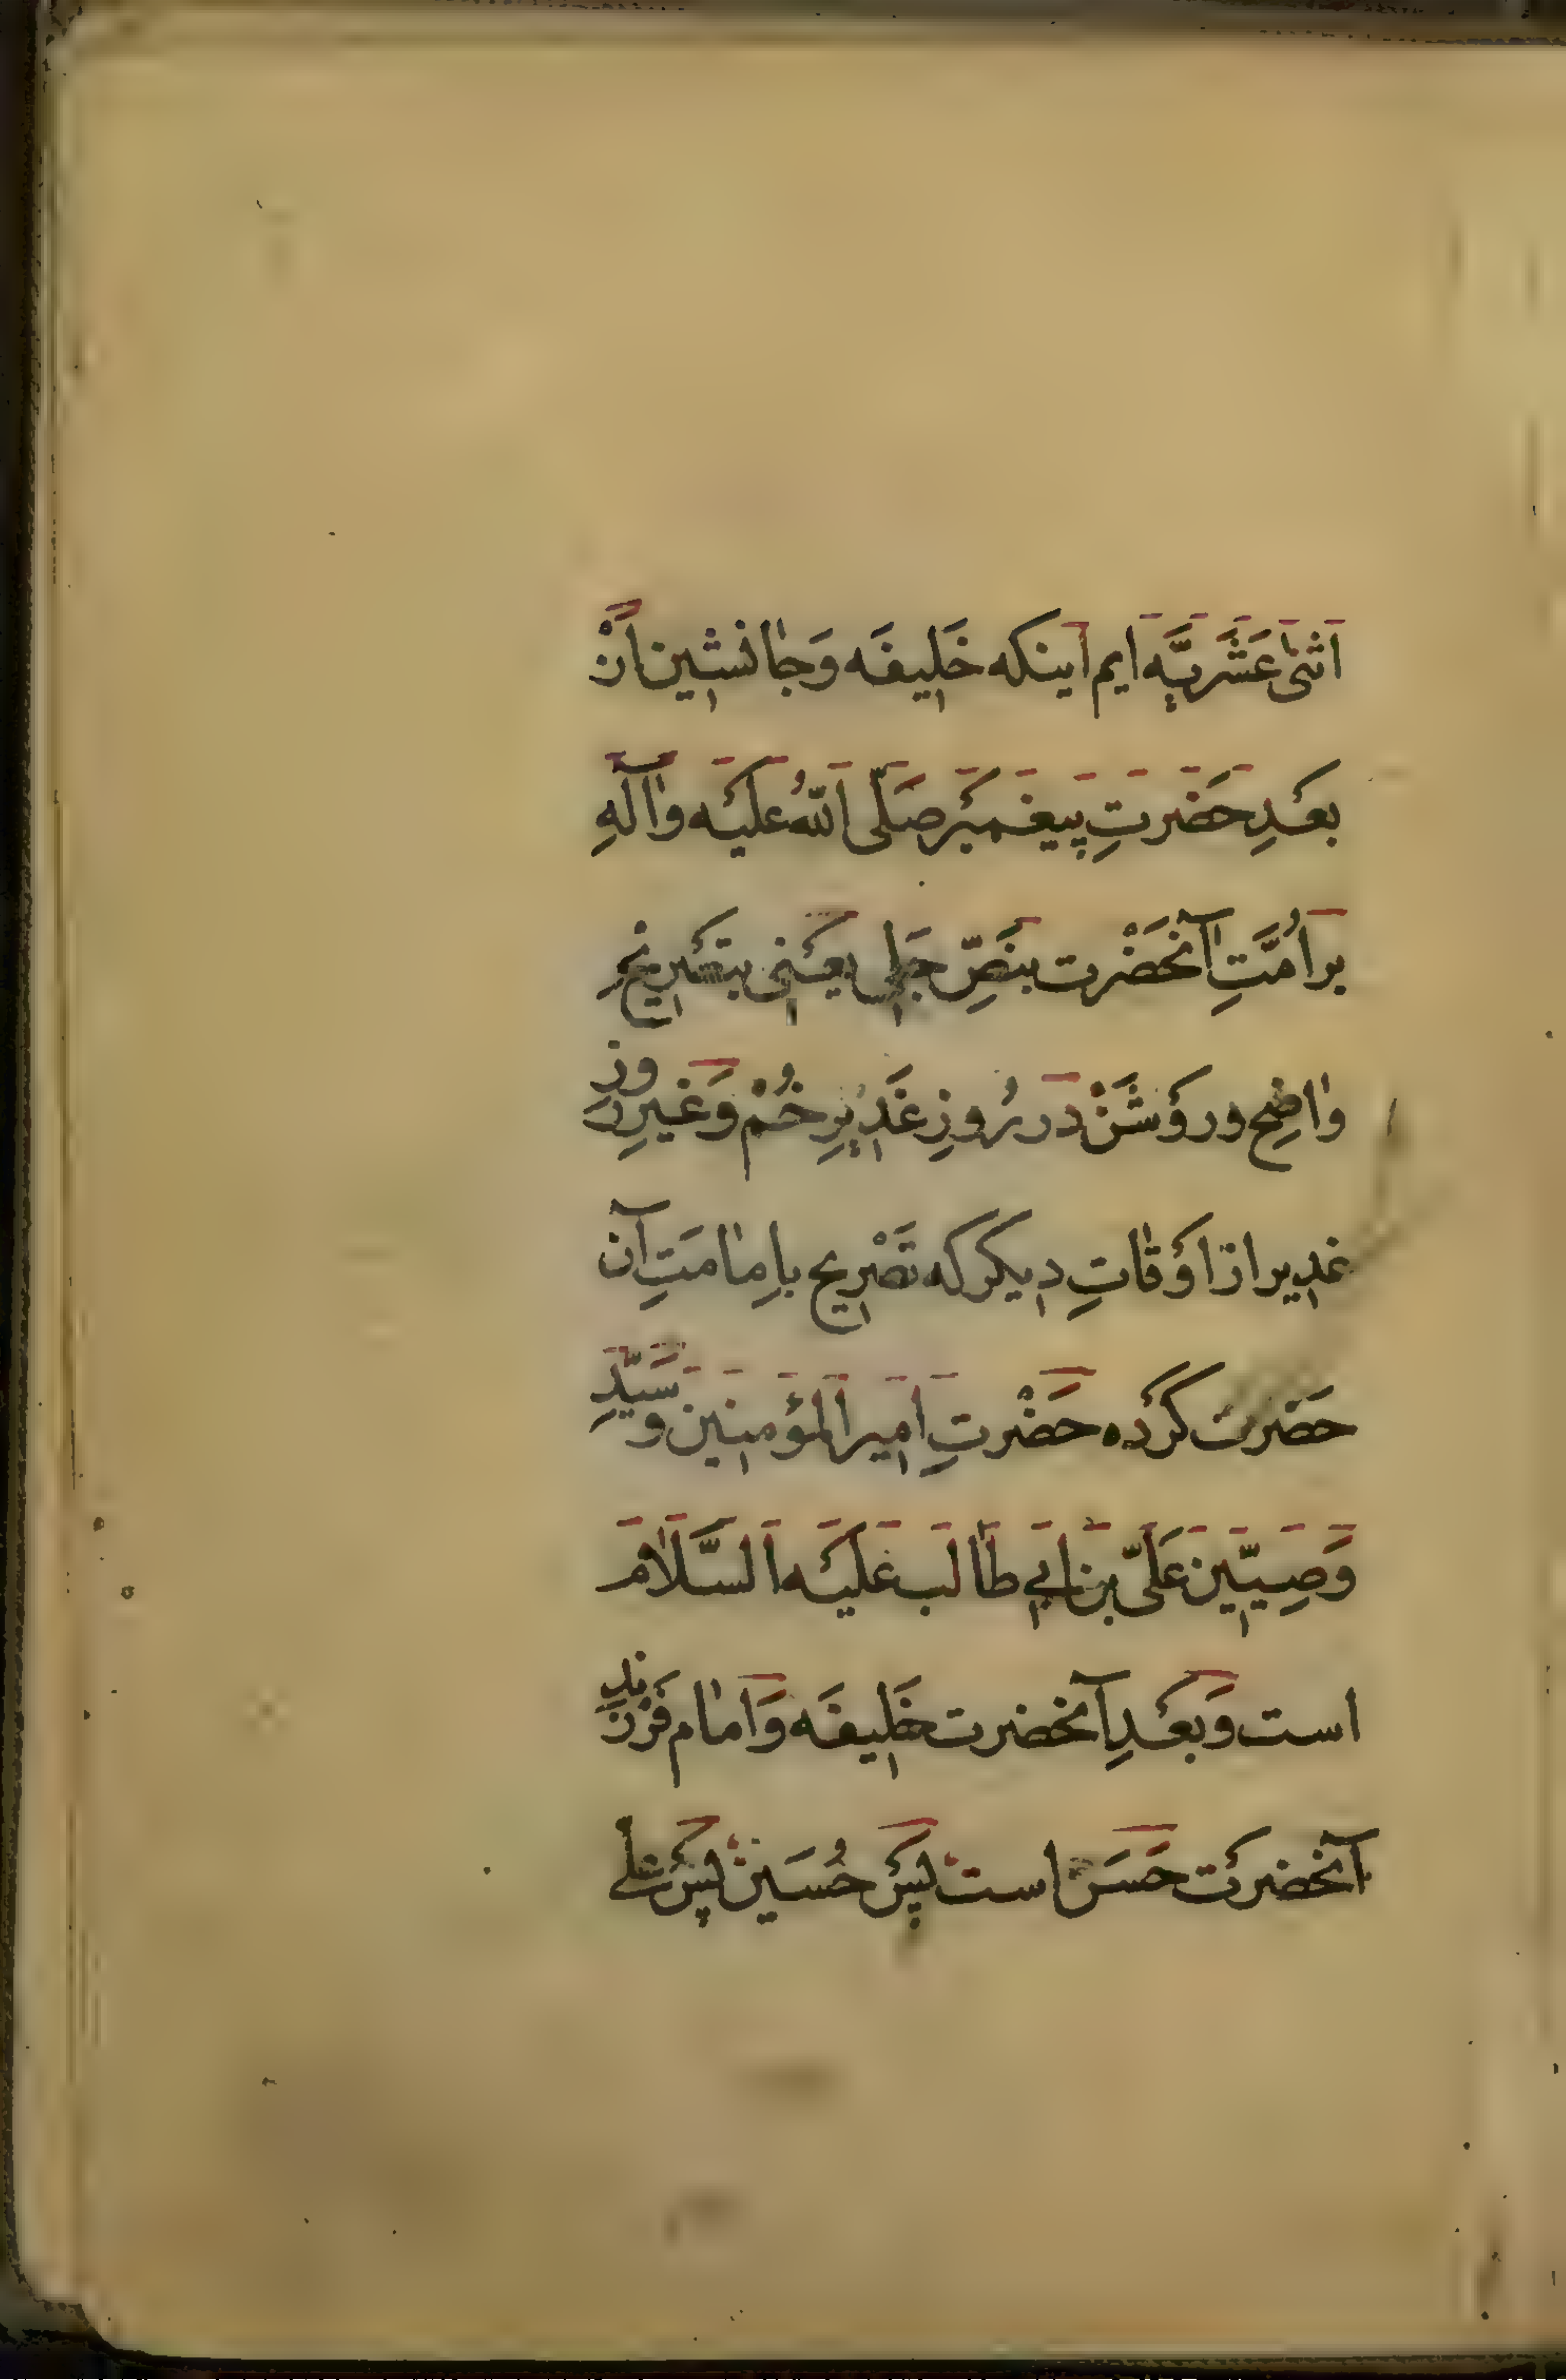 اَثنیٰ عَشَریَّه ایم اینکه خَلیفَه وَجٰانشین اَزْ
بعْدِ حَضرتِ پیغمبَر صَلّی اللّهُ علیْه وٰآلهِ
بر اُمَّتِ آنحَضْرت بنَصِّ جَلی یعْنی بتصْریحِ
وٰاضِح و روْشَنْ در رُوزِ غَدیرِ خُمْ وَغیرِ روزِ
غدیر از اوْقٰاتِ دیکر که تَصْریح باِمٰامَتِ آن
حَضرت کرْده حَضْرتِ امیرالمؤمنین و سَیِّدِ
وَصِیّین عَلیّ بن ابی طٰالب عَلَیْه السَّلٰام
است وَبعْدِ آنحضرت خَلیفَه وَامٰام فَرْزندِ
آنحضرت حَسَن است پَسْ حُسَینْ پسْ علی